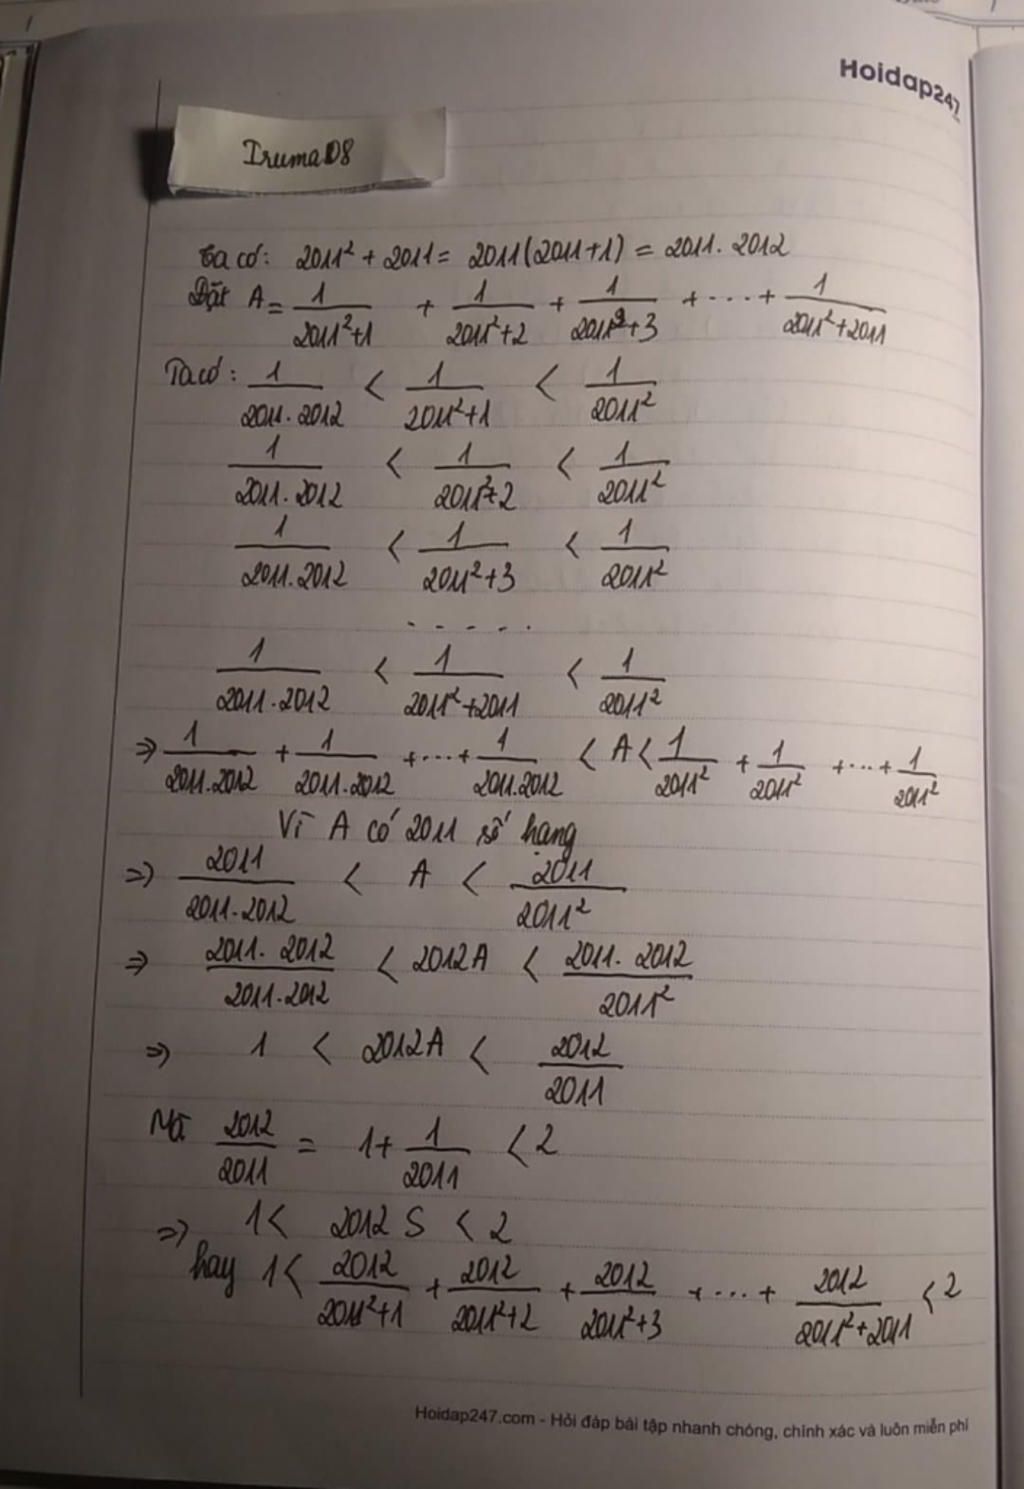 Hoidap247
Iruma08
Ta có: 2011² + 2011 = 2011(2011+1) = 2011. 2012
Đặt A = 1/(2011²+1) + 1/(2011²+2) + 1/(2011²+3) + .... + 1/(2011²+2011)
Ta có: 1/(2011.2012) < 1/(2011²+1) < 1/2011²
1/(2011.2012) < 1/(2011²+2) < 1/2011²
1/(2011.2012) < 1/(2011²+3) < 1/2011²
. . . . .
1/(2011.2012) < 1/(2011²+2011) < 1/2011²
⇒ 1/(2011.2012) + 1/(2011.2012) + ... + 1/(2011.2012) < A < 1/2011² + 1/2011² + ... + 1/2011²
Vì A có 2011 số hạng
⇒ 2011/(2011.2012) < A < 2011/2011²
⇒ (2011. 2012)/(2011.2012) < 2012A < (2011. 2012)/2011²
⇒ 1 < 2012A < 2012/2011
Mà 2012/2011 = 1 + 1/2011 < 2
⇒ 1 < 2012 S < 2
hay 1 < 2012/(2011²+1) + 2012/(2011²+2) + 2012/(2011²+3) + ... + 2012/(2011²+2011) < 2
Hoidap247.com - Hỏi đáp bài tập nhanh chóng, chính xác và luôn miễn phí